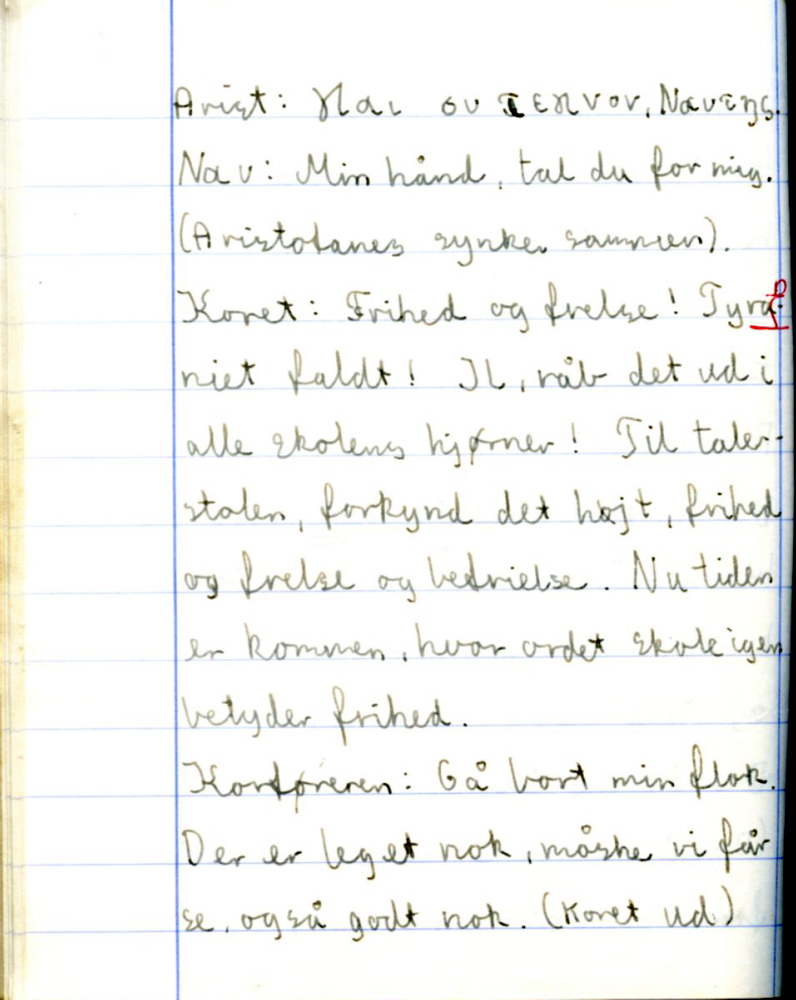 Arist: Και συ τεκνον, Ναυτης.
Nav: Min hånd, tal du for mig.
(Aristofanes synker sammen).
Koret: Frihed og frelse! Tyra-
niet faldt! Il, råb det ud i
alle skolens hjørner! Til taler-
stolen, forkynd det højt, frihed
og frelse og befrielse. Nu tiden
er kommen, hvor ordet skole igen
betyder frihed.
Korføreren: Gå bort min flok.
Der er leget nok, måske vi får
se, også godt nok. (Koret ud)